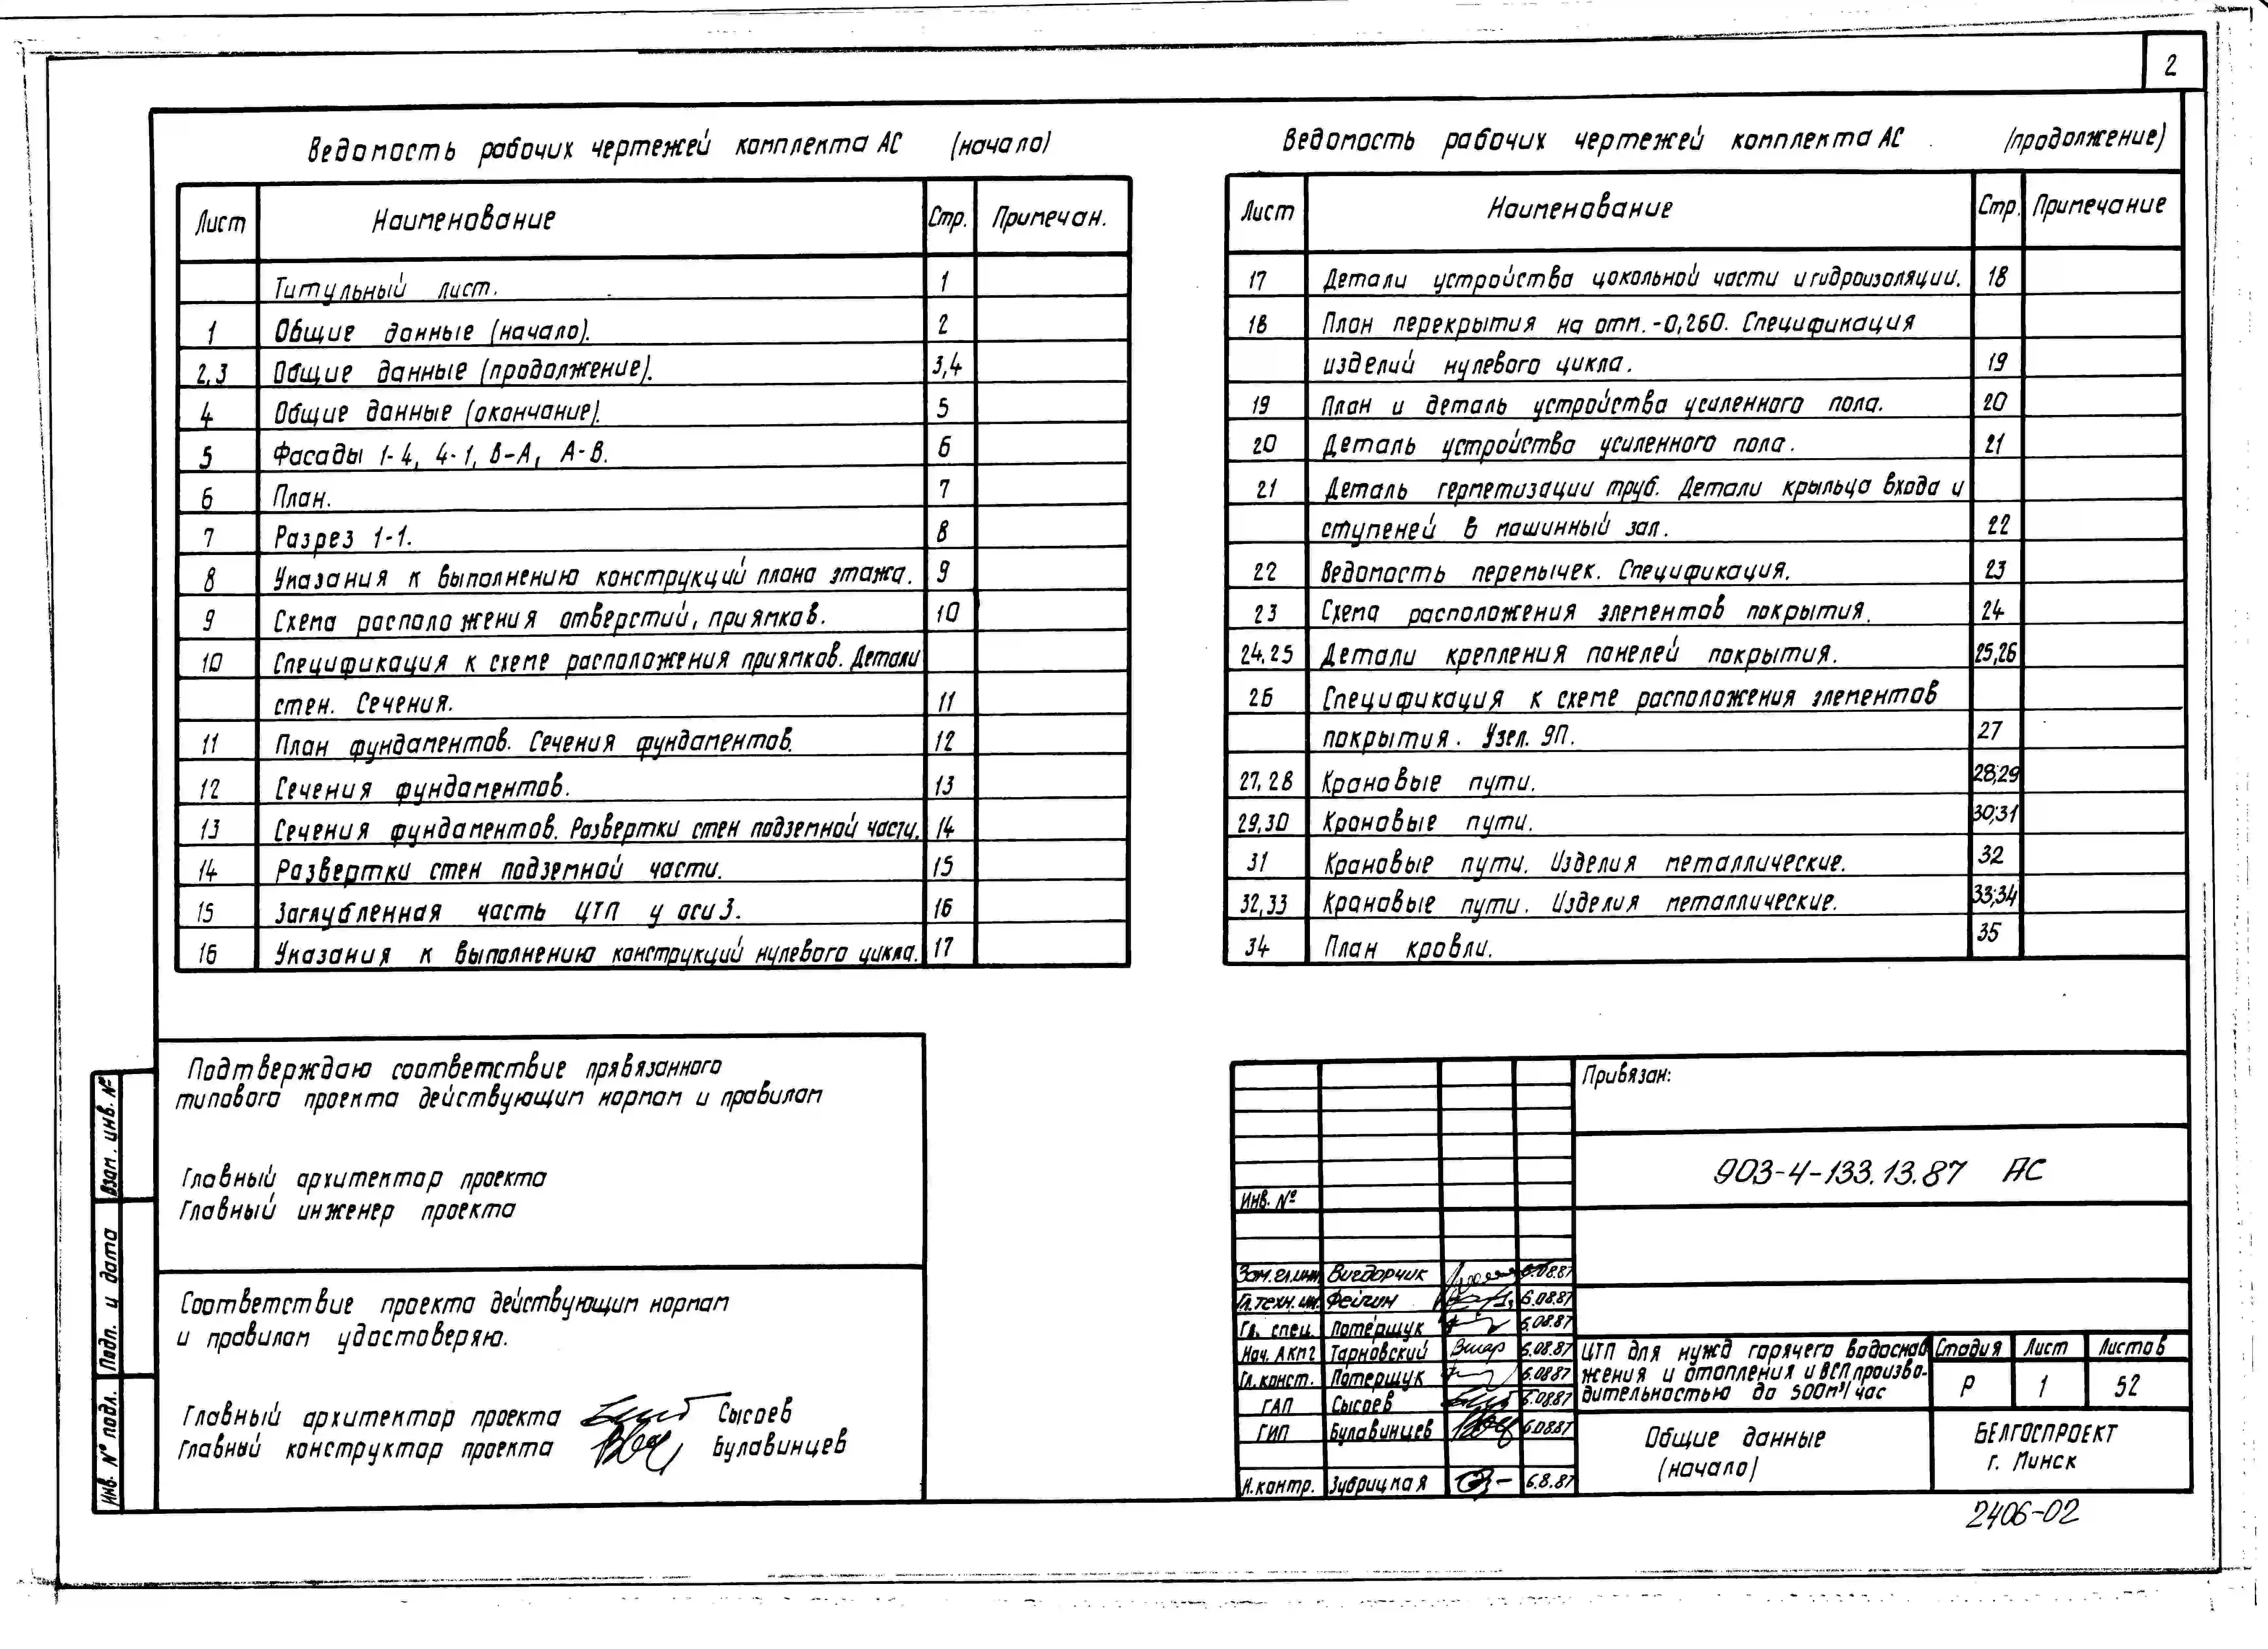 2
Ведомость рабочих чертежей комплекта АС (начало)
Лист Наименование Стр. Примечан.
Титульный лист. 1
1 Общие данные (начало). 2
2,3 Общие данные (продолжение). 3,4
4 Общие данные (окончание). 5
5 Фасады 1-4, 4-1, В-А, А-В. 6
6 План. 7
7 Разрез 1-1. 8
8 Указания к выполнению конструкций плана этажа. 9
9 Схема расположения отверстий, приямков. 10
10 Спецификация к схеме расположения приямков. Детали
стен. Сечения. 11
11 План фундаментов. Сечения фундаментов. 12
12 Сечения фундаментов. 13
13 Сечения фундаментов. Развертки стен подземной части. 14
14 Развертки стен подземной части. 15
15 Заглубленная часть ЦТП у оси 3. 16
16 Указания к выполнению конструкций нулевого цикла. 17
Ведомость рабочих чертежей комплекта АС (продолжение)
Лист Наименование Стр. Примечание
17 Детали устройства цокольной части и гидроизоляции. 18
18 План перекрытия на отм. -0,260. Спецификация
изделий нулевого цикла. 19
19 План и деталь устройства усиленного пола. 20
20 Деталь устройства усиленного пола. 21
21 Деталь герметизации труб. Детали крыльца входа и
ступеней в машинный зал. 22
22 Ведомость перемычек. Спецификация. 23
23 Схема расположения элементов покрытия. 24
24,25 Детали крепления панелей покрытия. 25,26
26 Спецификация к схеме расположения элементов
покрытия. Узел. 9П. 27
27,28 Крановые пути. 28;29
29,30 Крановые пути. 30;31
31 Крановые пути. Изделия металлические. 32
32,33 Крановые пути. Изделия металлические. 33;34
34 План кровли. 35
Подтверждаю соответствие прявязанного
типового проекта действующим нормам и правилам
Главный архитектор проекта
Главный инженер проекта
Соответствие проекта действующим нормам
и правилам удостоверяю.
Главный архитектор проекта Сысоев
Главный конструктор проекта Булавинцев
Взам. инв. №
Подп. и дата
Инв. № подл.
Привязан:
Инв. №
903-4-133.13.87 АС
Зам.гл.инж Вигдорчик 6.08.87
Гл.техн.инж. Фейгин 6.08.87
Гл. спец. Потерщук 6.08.87
Нач. АКМ2 Тарновский 6.08.87
Гл.конст. Потерщук 6.08.87
ГАП Сысоев 6.08.87
ГИП Булавинцев 6.08.87
Н.контр. Зубрицкая 6.8.87
ЦТП для нужд горячего водоснаб
жения и отопления и ВСП произво-
дительностью до 500м³/час
Стадия Лист Листов
Р 1 52
Общие данные
(начало)
БЕЛГОСПРОЕКТ
г. Минск
2406-02